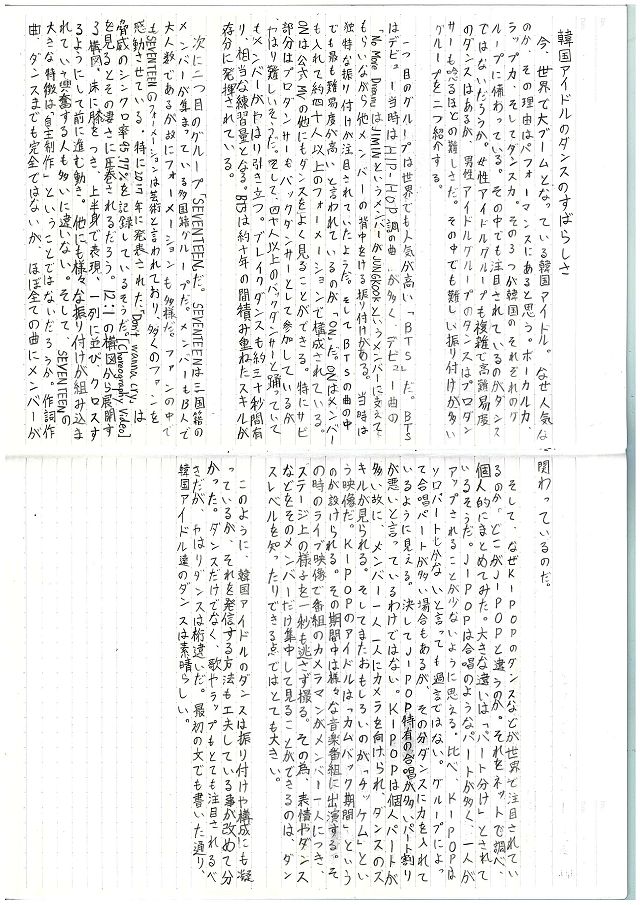 韓国アイドルのダンスのすばらしさ
今、世界で大ブームとなっている韓国アイドル。なぜ人気な
のか、その理由はパフォーマンスにあると思う。ボーカル力、
ラップ力、そしてダンス力。その3つが韓国のそれぞれのグ
ループに備わっている。その中でも注目されているのがダンス
ではないだろうか。女性アイドルグループも複雑で高難易度
のダンスはあるが、男性アイドルグループのダンスはプロダン
サーも唸るほどの難しさだ。その中でも難しい振り付けが多い
グループを二つ紹介する。
一つ目のグループは世界でも人気が高い「BTS」だ。BTS
はデビュー当時はHIP-HOP調の曲が多く、デビュー曲の
「No More Dream」はJIMINというメンバーがJUNGKOOKというメンバーに支えて
もらいながら他メンバーの背中をける振り付けがある。当時は
独特な振り付けが注目されていたようだ。そしてBTSの曲の中
でも最も難易度が高いと言われているのが「ON」だ。ONはメンバー
も入れて約四十人以上のフォーメーションで構成されている。
ONは公式MVの他にもダンスをよく見ることができる。特にサビ
部分はプロダンサーもバックダンサーとして参加しているが
やはり難しいそうだ。そして、四十人以上のバックダンサーと踊っていて
もメンバーがやはり引き立つ。ブレイクダンスも約三十秒間有
り、相当な練習量となる。BTSは約十年の間積み重ねたスキルが
存分に発揮されている。
次に二つ目のグループ「SEVENTEEN」だ。SEVENTEENは三国籍の
メンバーが集まっている多国籍グループだ。メンバーも13人で
大人数であるが故にフォーメーションも多様だ。ファンの中で
もSEVENTEENのフォーメーションは芸術と言われており、多くのファンを
感動させている。特に2017年に発表された「Don't wanna cry」は
脅威のシンクロ率97.77%を記録しているそうだ。「Choreography Video」
を見るとその凄さに圧巻されるだろう。12:1の構図から展開す
る横図、床に膝をつき、上半身で表現、一列に並びクロスす
るようにして前に進む動き。他にも様々な振り付けが組み込ま
れていて興奮する人も多いに違いない。そして、SEVENTEENの
大きな特徴は「自主制作」ということではないだろうか。作詞作
曲、ダンスまでも完全ではないが、ほぼ全ての曲にメンバーが
関わっているのだ。
そして、なぜK-POPのダンスなどが世界で注目されてい
るのか、どこがJ-POPと違うのか。それをネットで調べ、
個人的にまとめてみた。大きな違いは「パート分け」とされて
いるそうだ。J-POPは合唱のようなパートが多く、一人が
アップされることが少ないように思える。比べ、K-POPは
ソロパートしかないと言っても過言ではない。グループによっ
て合唱パートが多い場合もあるが、その分ダンスに力を入れて
いるように見える。決してJ-POP特有の合唱が多いパート割り
が悪いと言っているわけではない。K-POPは個人パートが
多い故に、メンバー一人一人にカメラを向けられ、ダンスのス
キルが見られる。そしてまたおもしろいのが「チッケム」とい
う映像だ。K-POPのアイドルは「カムバック期間」という
のが設けられる。その期間中は様々な音楽番組に出演する。そ
の時のライブ映像で番組のカメラマンがメンバー一人につき、
ステージ上の様子を一秒も逃さず撮る。その為、表情やダンス
などをそのメンバーだけ集中して見ることができるのは、ダン
スレベルを知ったりできる点ではとても大きい。
このように、韓国アイドルのダンスは振り付けや構成にも凝
っているが、それを発信する方法も工夫している事が改めて分
かった。ダンスだけでなく、歌やラップもとても注目されるべ
きだが、やはりダンスは桁違いだ。最初の文でも書いた通り、
韓国アイドル達のダンスは素晴らしい。